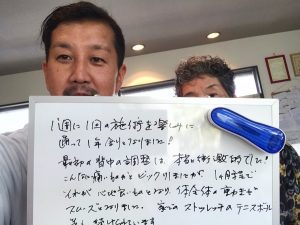 1週に1回の施術を楽しみに
通って1年余りとなりました!
最初の背中の調整は、本当に衝撃的でした!
こんなに痛いものかとビックリしましたが 1ヶ月も
それが 心地良いものとなり 体全体の動きも
スムーズになりました。 家でのストレッチのテニスボール
続けられています